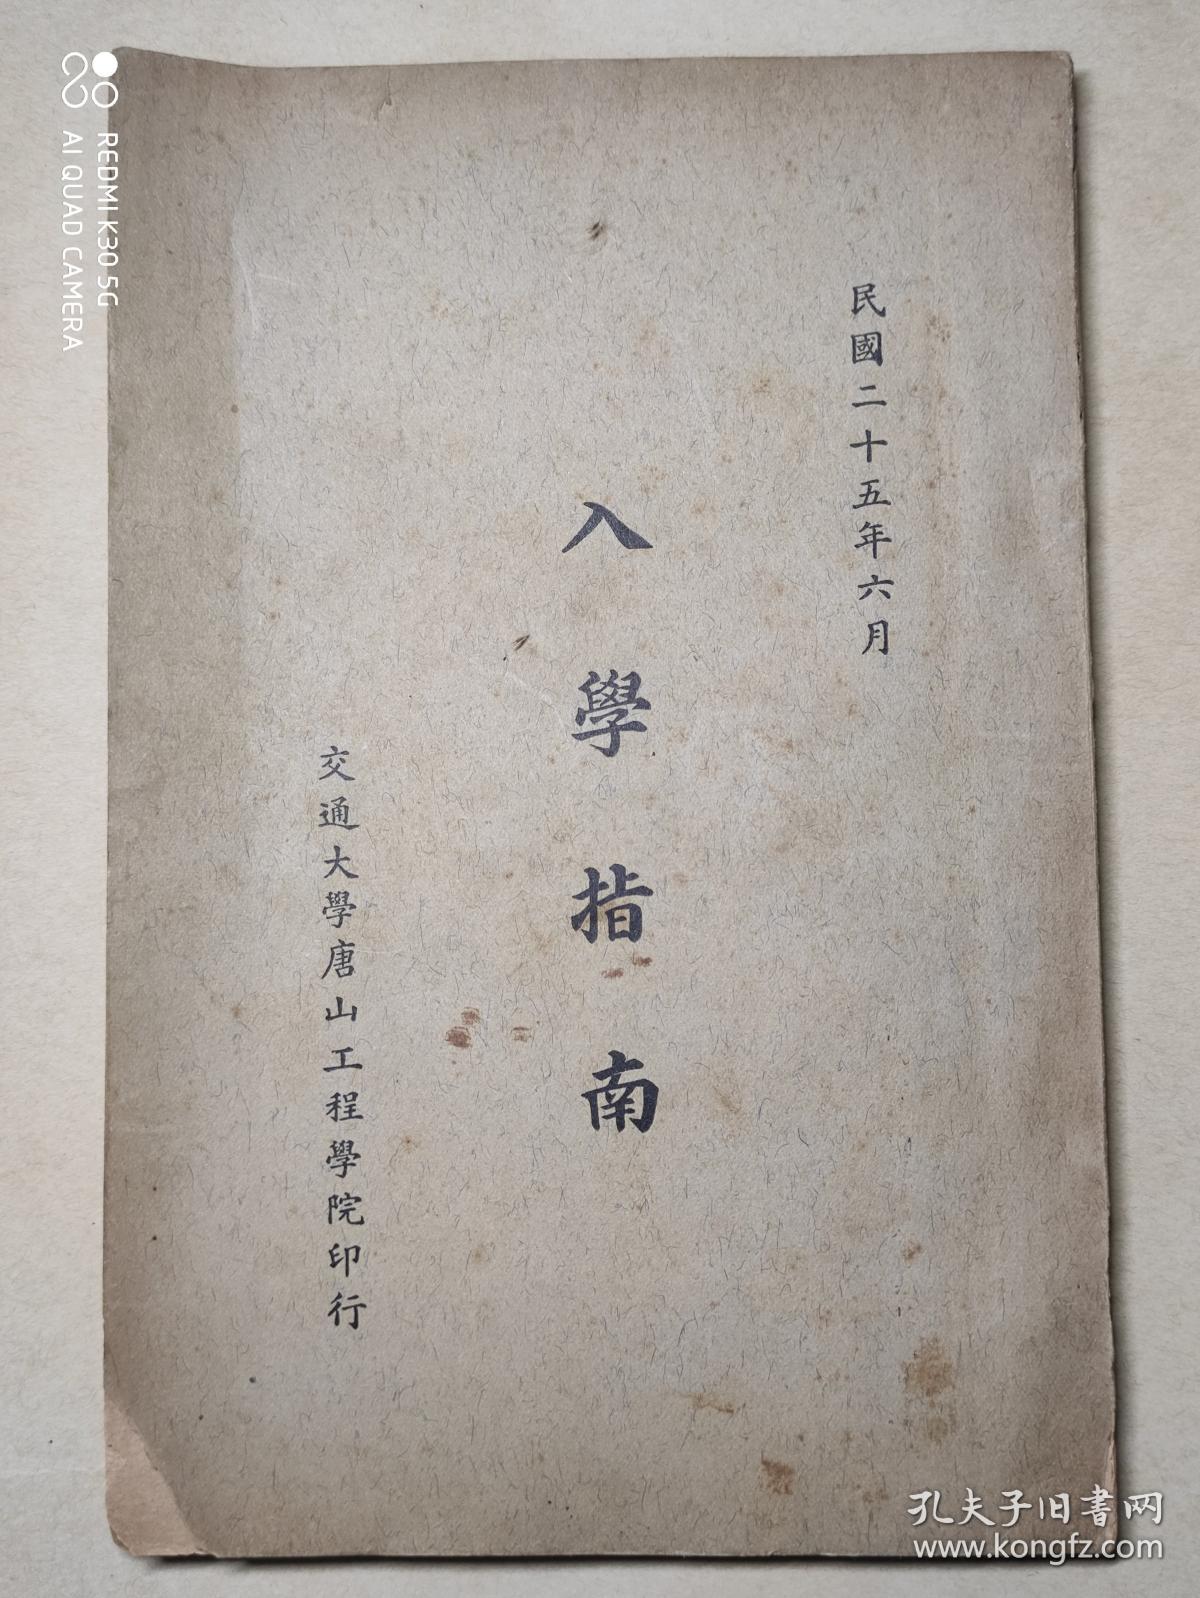 民國二十五年六月
入學指南
交通大學唐山工程學院印行
REDMI K30 5G
AI QUAD CAMERA
孔夫子旧書网
www.kongfz.com